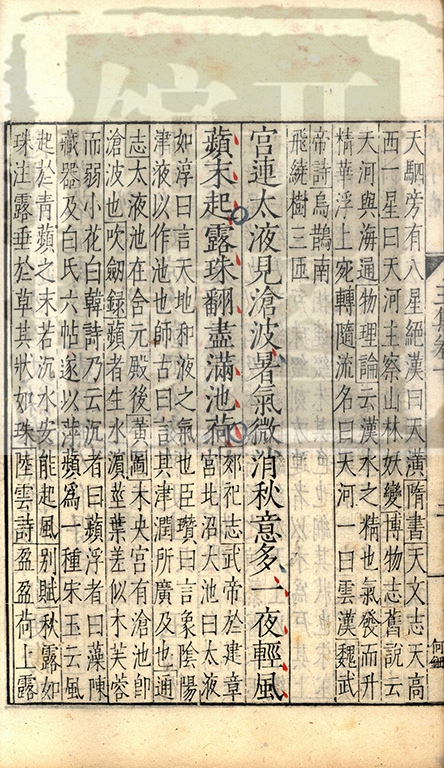 天駟旁有八星絕漢曰天潢隋書天文志天高
西一星曰天河主察山林妖變博物志舊說云
天河與海通物理論云漢水之精也氣發而升
精華浮上宛轉隨流名曰天河一曰雲漢魏武
帝詩烏鵲南
飛繞樹三匝
宮連太液見滄波暑氣微消秋意多一夜輕風
蘋末起露珠翻盡滿池荷
郊祀志武帝於建章
宮北沼大池曰太液
如淳曰言天地和液之氣也臣瓚曰言象陰陽
津液以作池也師古曰言其津潤所廣及也通
志太液池在含元殿後黃圖未央宮有滄池卽
滄波也吹劔錄蘋者生水濵莖葉差似木芙蓉
而弱小花白韓詩乃云沉者曰蘋浮者曰藻陳
藏器及白氏六帖遂以萍蘋爲一種宋玉云風
起於青蘋之末若沉水安能起風別賦秋露如
珠注露垂於草其狀如珠陸雲詩盈盈荷上露